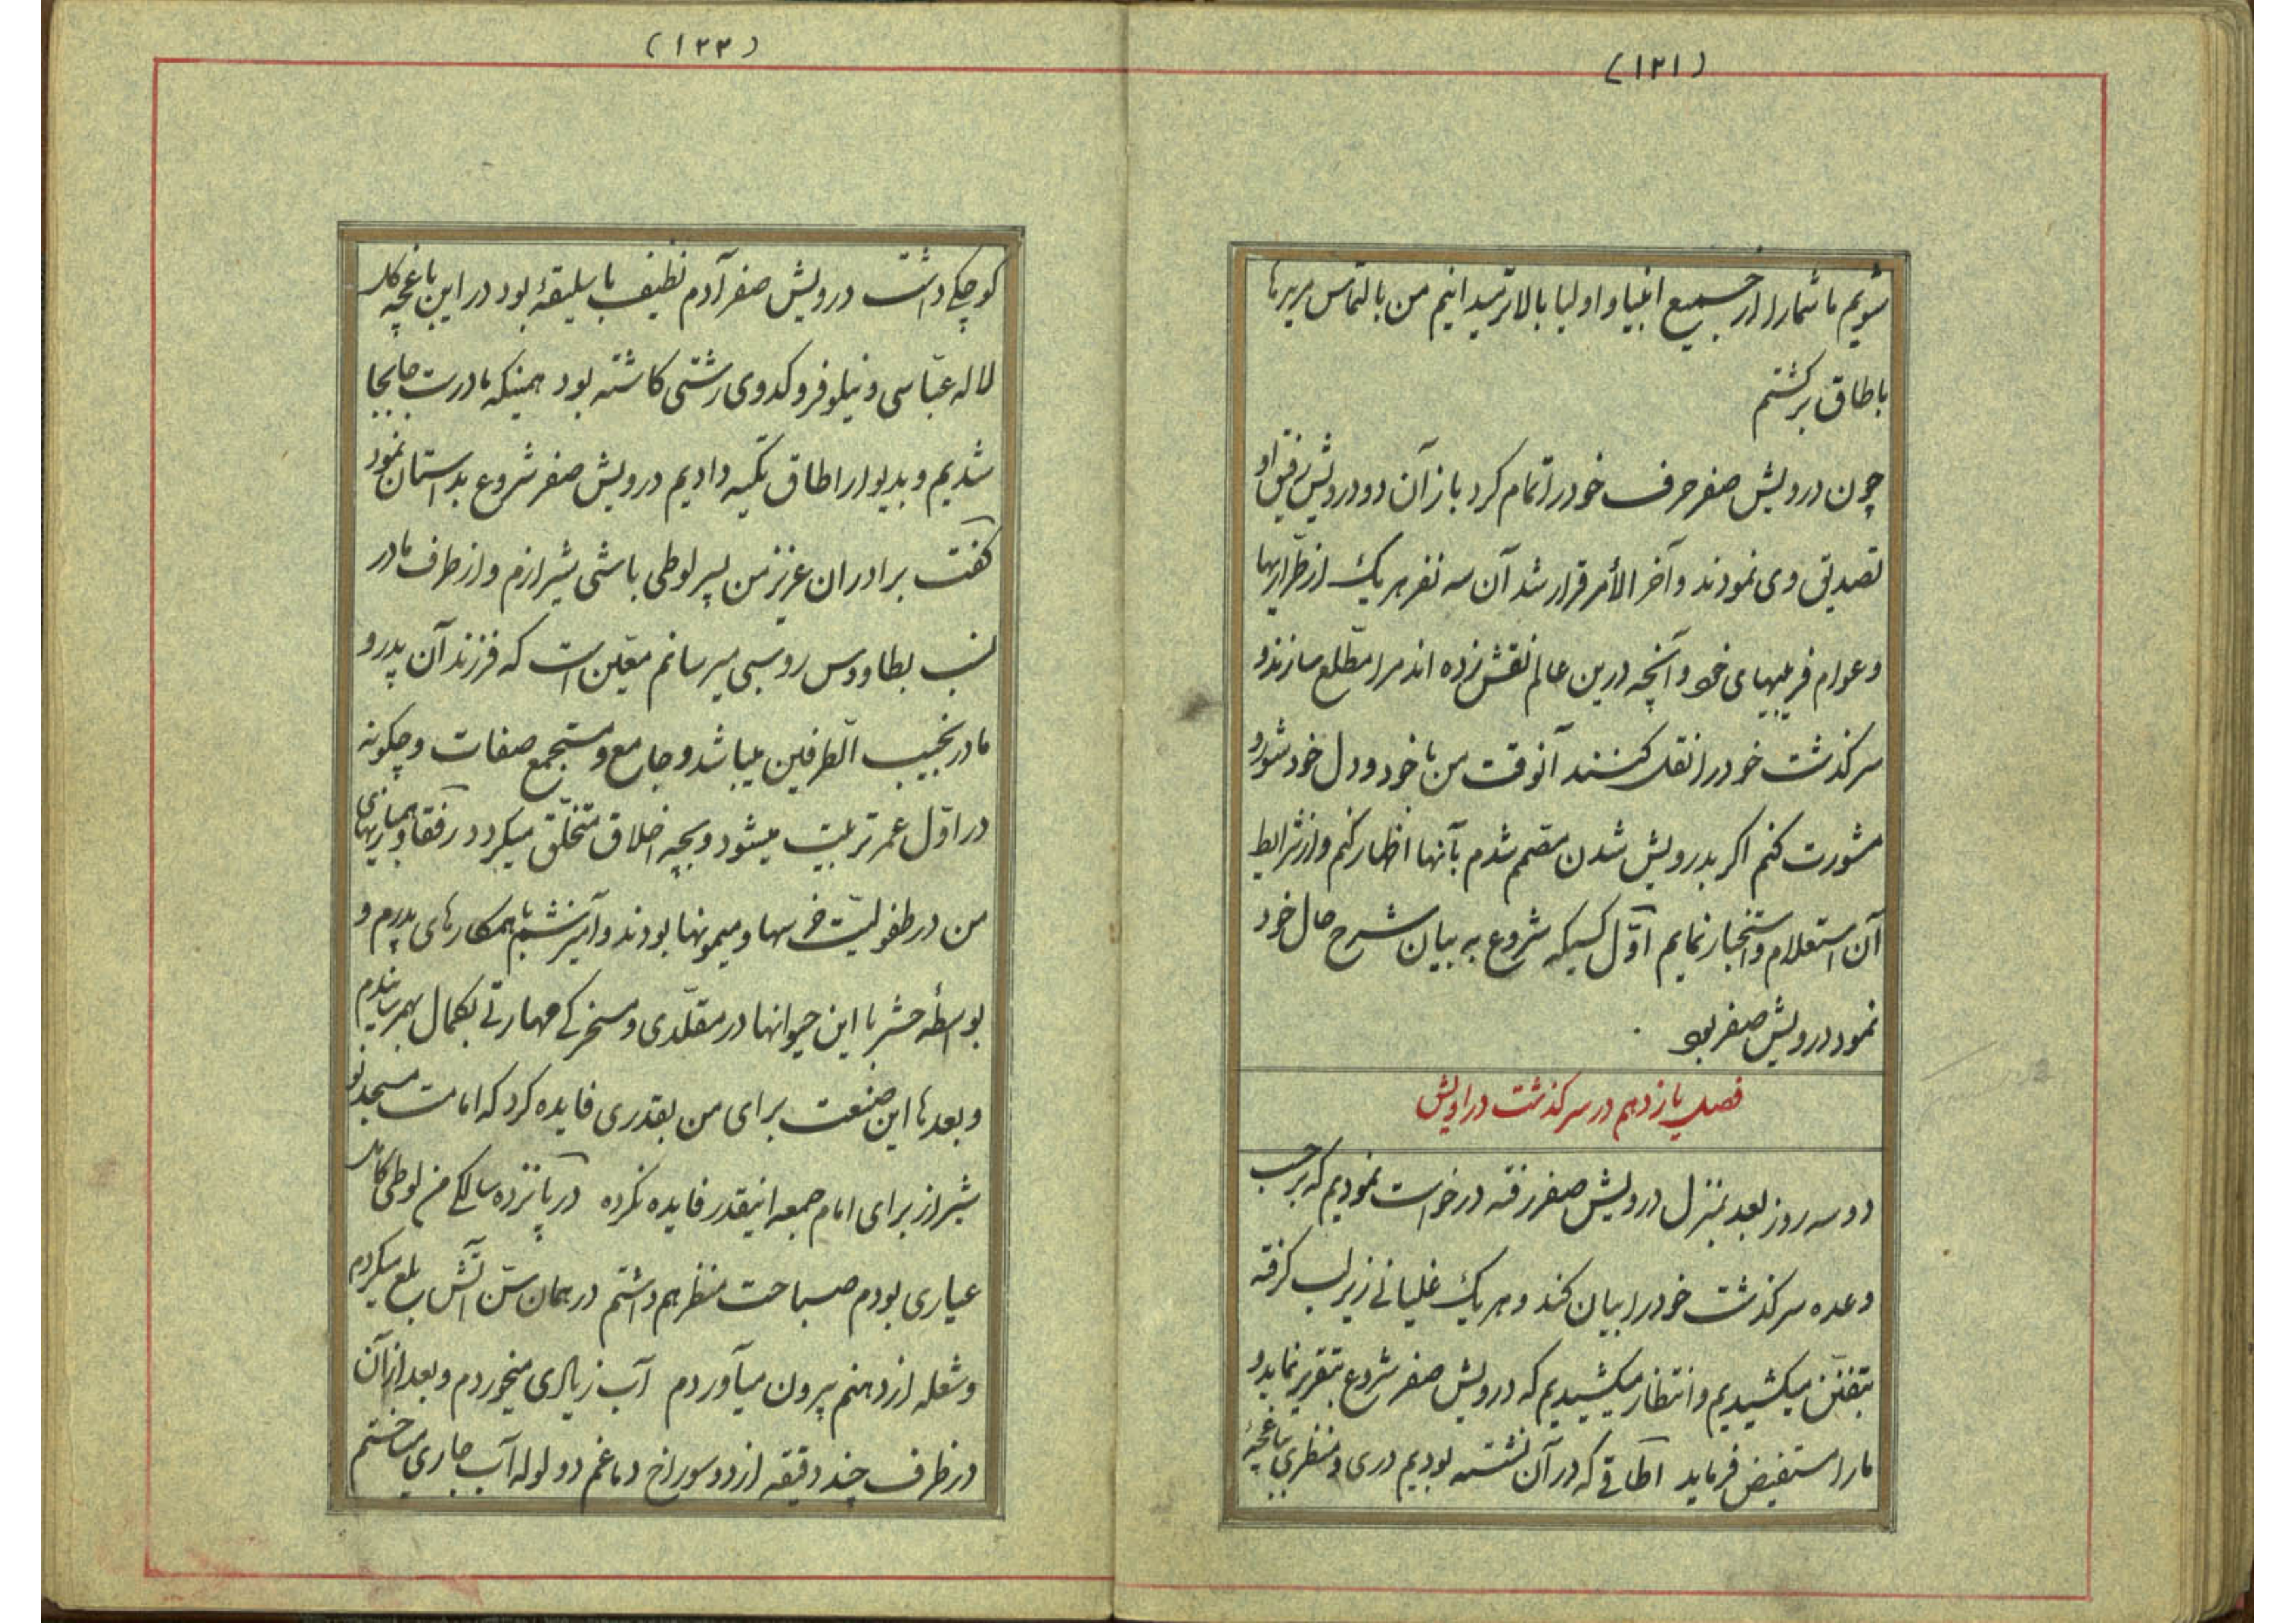 (۱۲۱)
شویم ما شما را از جمیع انبیا و اولیا بالاتر میدانیم من بالتماس مریدها
باطاق برگشتم
چون درویش صفر حرف خود را تمام کرد باز آن دو درویش رفیق او
تصدیق وی نمودند و آخر الأمر قرار شد آن سه نفر هر یک از طرّاریها
و عوام فریبیهای خود و آنچه درین عالم نقش زده اند مرا مطّلع سازند و
سرگذشت خود را نقل کنند آنوقت من با خود و دل خود شور و
مشورت کنم اگر بدرویش شدن مصمم شدم بآنها اظهار کنم و از شرایط
آن استعلام و استخبار نمایم اوّل کسیکه شروع به بیان شرح حال خود
نمود درویش صفر بود
فصل یازدهم در سرگذشت دراویش
دو سه روز بعد بمنزل درویش صفر رفته درخواست نمودیم که بر حسب
وعده سرگذشت خود را بیان کند و هر یک غلیانی زیر لب گرفته
بتفنّن میکشیدیم و انتظار میکشیدیم که درویش صفر شروع بتقریر نماید و
ما را مستفیض فرماید اطاقی که در آن نشسته بودیم دری و منظری بباغچهٔ
(۱۲۲)
کوچکی داشت درویش صفر آدم نظیف با سلیقهٔ بود در این باغچه گل
لاله عبّاسی و نیلوفر و کدوی رشتی کاشته بود همینکه ما درست جابجا
شدیم و بدیوار اطاق تکیه دادیم درویش صفر شروع بداستان نمود
گفت برادران عزیز من پسر لوطی باشی شیرازم و از طرف مادر
نسب بطاووس روسبی میرسانم معیّن است که فرزند آن پدر و
مادر نجیب الطّرفین میباشد و جامع و مستجمع صفات و چگونه
در اوّل عمر تربیت میشود و بچه اخلاق متخلّق میگردد رفقا و همبازیهای
من در طفولیّت خرسها و میمونها بودند و آمیزشم با همکارهای پدرم و
بواسطهٔ حشر با این حیوانها در مقلّدی و مسخرگی مهارتی بکمال بهمرسانیدم
و بعدها این صنعت برای من بقدری فایده کرد که امامت مسجد نو
شیراز برای امام جمعه اینقدر فایده نکرده در پانزده سالگی من لوطی کامل
عیاری بودم صباحت منظر هم داشتم در همان سنّ آتش بلع میکردم
و شعله از دهنم بیرون میآوردم آب زیادی میخوردم و بعد از آن
در ظرف چند دقیقه از دو سوراخ دماغم دو لوله آب جاری میساختم